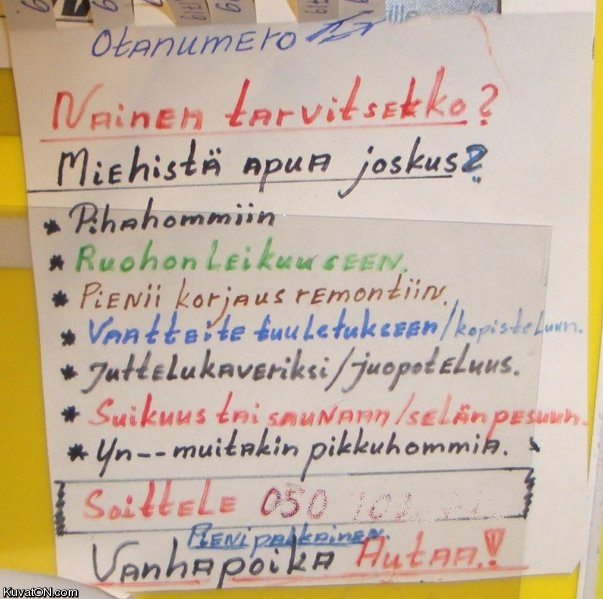 Otanumero
Nainen tarvitsekko?
Miehistä apua joskus?
* Pihahommiin
* Ruohonleikuuseen.
* Pienii korjausremontiin.
* Vaatteite tuuletukseen/kopisteluun.
* Juttelukaveriksi/juopoteluus.
* Suikuus tai saunaan/selänpesuun.
* Yn-- muitakin pikkuhommia.
Soittele 050
Pienipalkainen.
Vanhapoika Autaa!
KuvatON.com